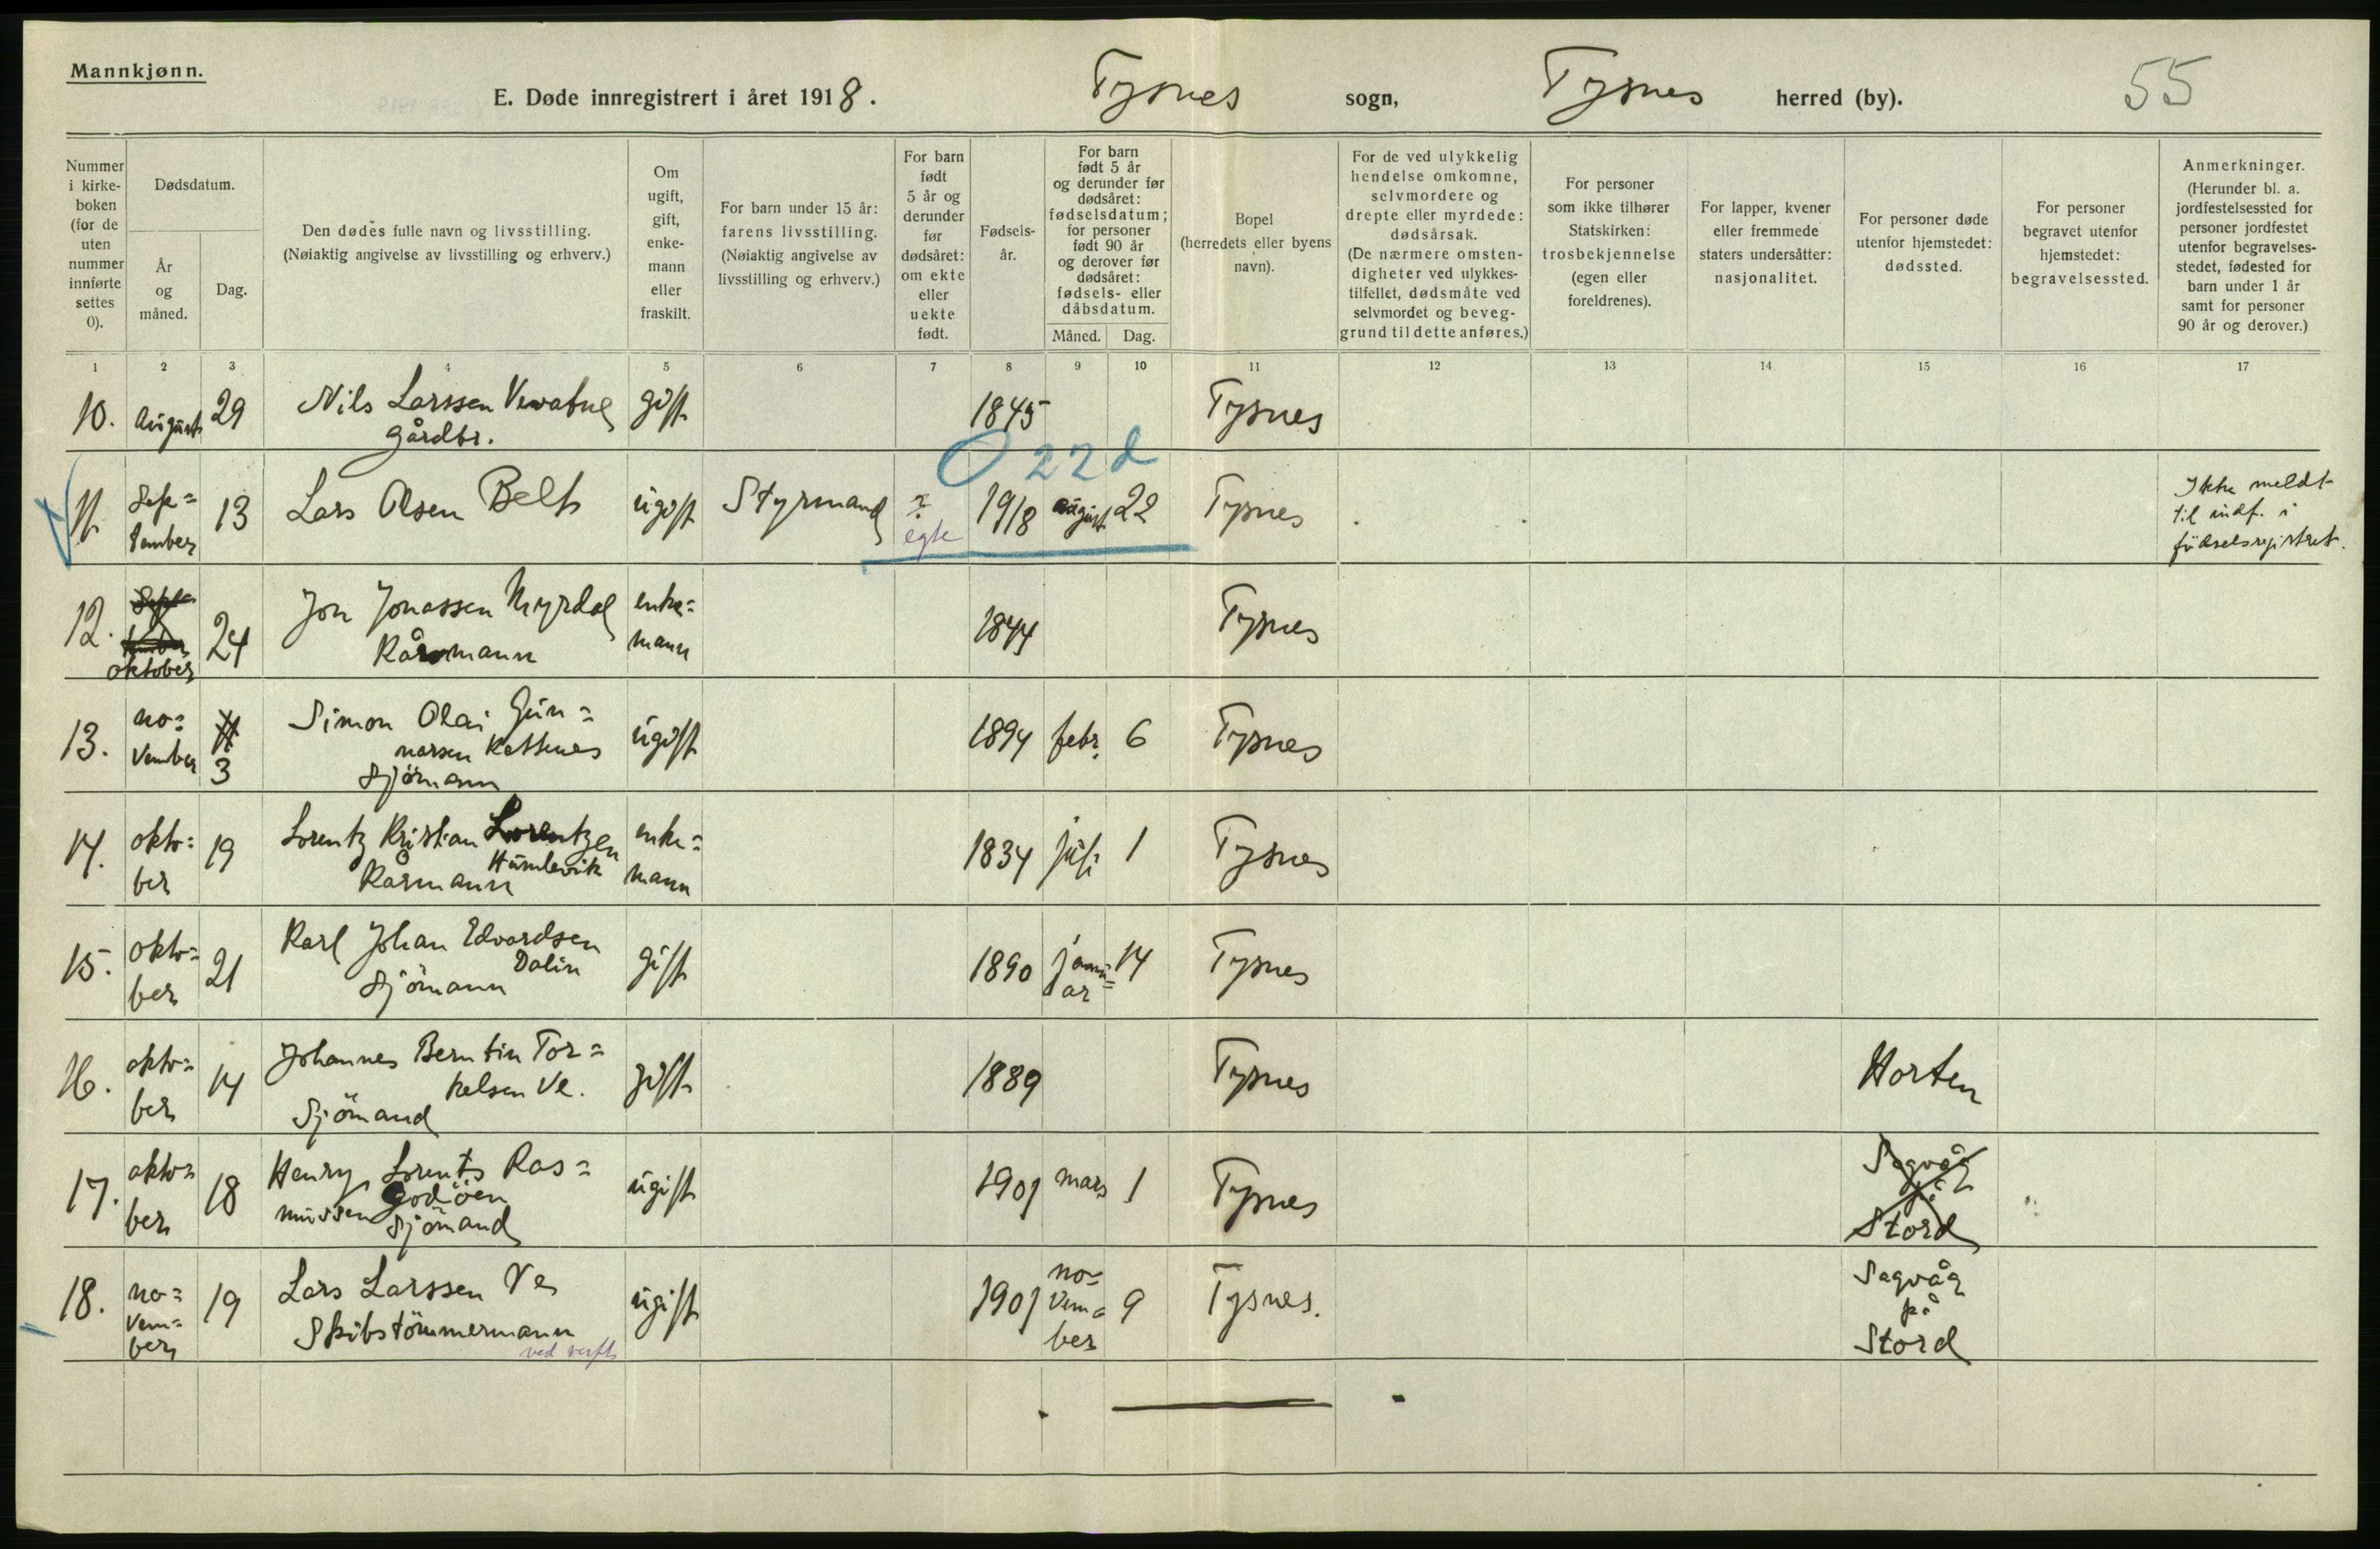 Mannkjønn.
E. Døde innregistrert i året 1918. Tysnes sogn, Tysnes herred (by). 55
Nummer i kirke-boken (for de uten nummer innførte settes 0).
Dødsdatum.
År og måned.
Dag.
Den dødes fulle navn og livsstilling.
(Nøiaktig angivelse av livsstilling og erhverv.)
Om ugift, gift, enke-mann eller fraskilt.
For barn under 15 år: farens livsstilling. (Nøiaktig angivelse av livsstilling og erhverv.)
For barn født 5 år og derunder før dødsåret: om ekte eller uekte født.
Fødsels-år.
For barn født 5 år og derunder før dødsåret: fødselsdatum; for personer født 90 år og derover før dødsåret: fødsels- eller dåbsdatum.
Måned. Dag.
Bopel (herredets eller byens navn).
For de ved ulykkelig hendelse omkomne, selvmordere og drepte eller myrdede: dødsårsak. (De nærmere omsten-digheter ved ulykkes-tilfellet, dødsmåte ved selvmordet og beveg-grund til dette anføres.)
For personer som ikke tilhører Statskirken: trosbekjennelse (egen eller foreldrenes).
For lapper, kvener eller fremmede staters undersåtter: nasjonalitet.
For personer døde utenfor hjemstedet: dødssted.
For personer begravet utenfor hjemstedet: begravelsessted.
Anmerkninger. (Herunder bl. a. jordfestelsessted for personer jordfestet utenfor begravelses-stedet, fødested for barn under 1 år samt for personer 90 år og derover.)
1 2 3 4 5 6 7 8 9 10 11 12 13 14 15 16 17
10. August 29 Nils Larssen gift 1845 Tysnes
gårdbr.
0 22 d
11. Sep= 13 Lars Olsen Belt ugift Styrmand 1918 august 22 Tysnes Ikke meldt
tember egte til indf. i
fødselsregistret.
12. Sep= Jon Jonassen Myrdal enke= 1844 Tysnes
tember 24 Kårmann mann
oktober
13. no= 11 Simon Olai Gun= ugift 1894 febr. 6 Tysnes
vember 3 narsen Kattenes
Sjömann
14. okto= 19 Lorentz Kristian Lorentzen enke= 1834 juli 1 Tysnes
ber Humlevik mann
Kårmann
15. okto= 21 Karl Johan Edvardsen gift 1890 janu= 14 Tysnes
ber Dalin ar
Sjömann
16. okto= 14 Johannes Berntin Tor= gift 1889 Tysnes Horten
ber kelsen Ve.
Sjömand
17. okto= 18 Henry Lorents Ras= ugift 1901 mars 1 Tysnes Sagvåg
ber mussen Godöen på
Sjömand Stord
18. no= 19 Lars Larssen Ve ugift 1901 no= 9 Tysnes. Sagvåg
vem= Skibstömmermann vem= på
ber ved verft ber Stord